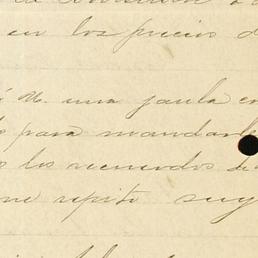 en los precios d
á U. una jaula co
para mandarle
los recuerdos de
me repito su